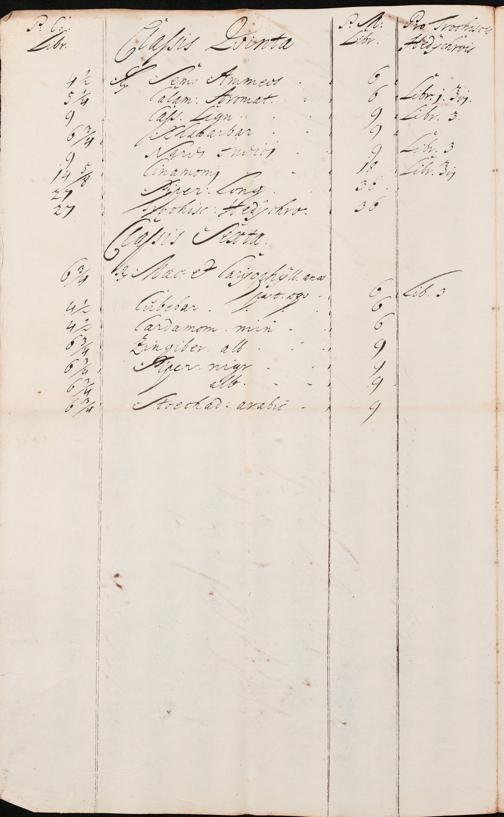 Classis Quinta
Libr. Libr.
Pro Trochiscis
Hedychrois
4 1/2 ℞ Sem: Ammeos 6
5 1/4 Calam: Aromat. 6 Libr. j. ʒij
9 Cass. Lign. 9 Libr. 3.
6 3/4 Rhabarbar 9
9 Nardi Indici 9 Libr. 3
14 5/8 Cinamom 18 Libr. ʒij
27 Piper: Long 36
27 Trochisc: Hedychro. 36
Classis Sexta.
6 3/4 ℞ Mac. et Caryophyll. ana
6 Lib. 3
4 1/2 Cubebar 6
4 1/2 Cardamom. min 6
6 3/4 Zingiber. alb 9
6 3/4 Piper: nigr 9
6 3/4 alb. 9
6 3/4 Stoechad: arabic 9